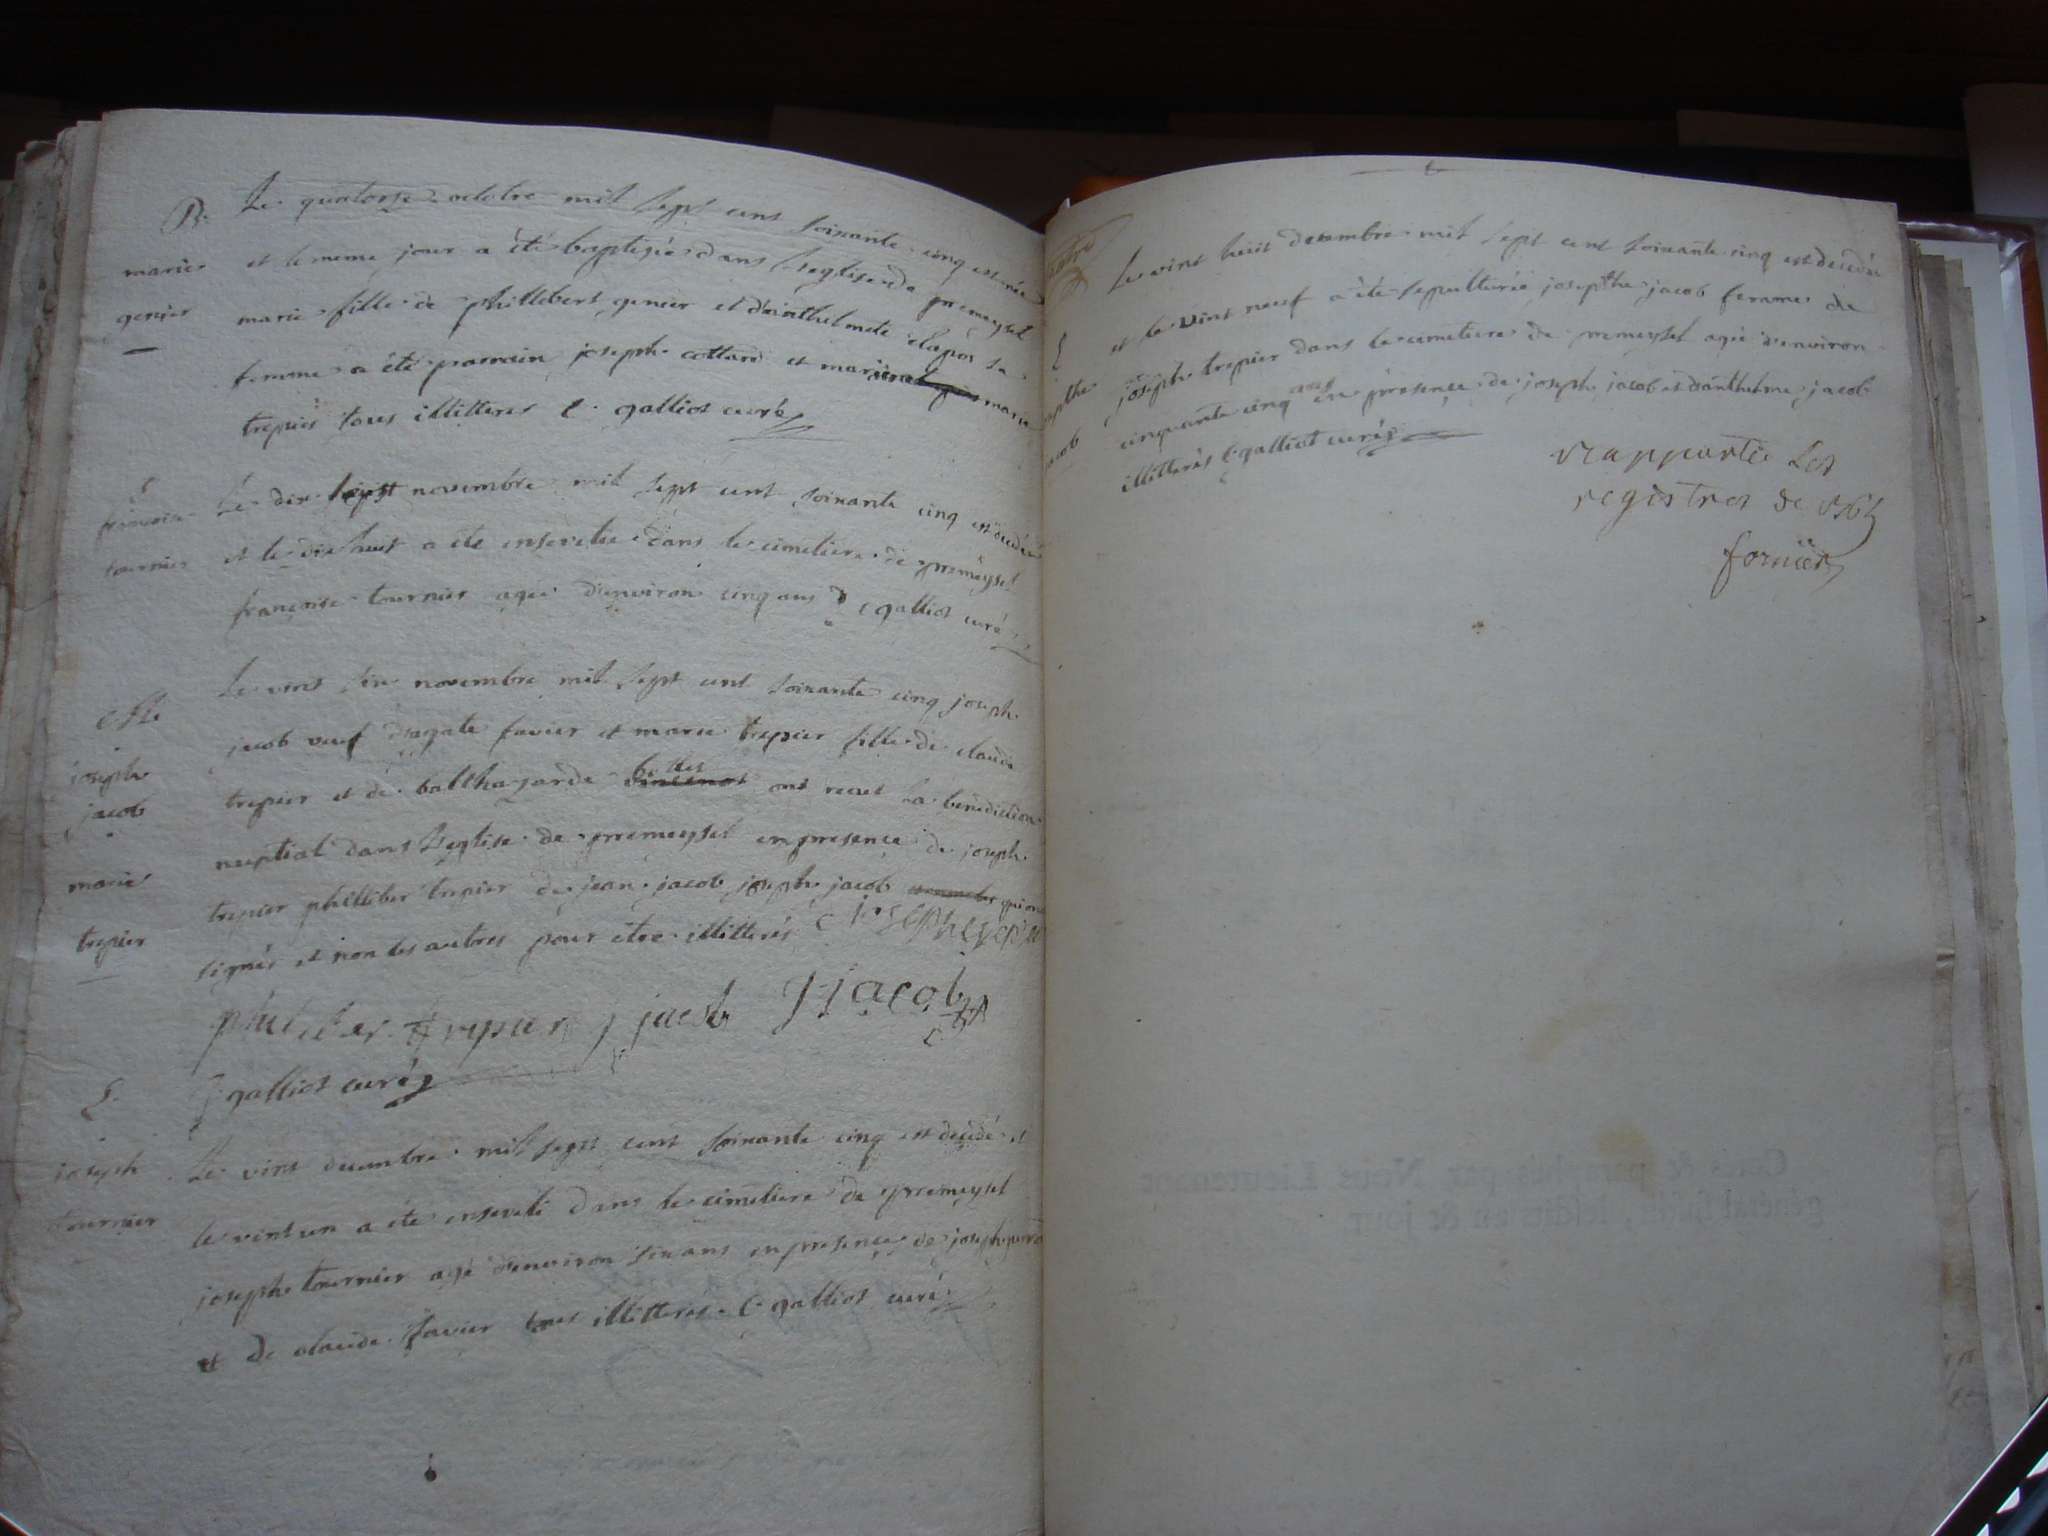 B.
marie
genier
Le quatorse octobre mil sept cent soixante cinq est née
et le meme jour a été baptisée dans l'eglise de premeysel
marie fille de phillibert genier et d'anthelmete clapos sa
femme a été parrain joseph cottard et marie marie
trepier tous illitteres C. galliot curé
S
francoise
tournier
Le dix sept novembre mil sept cent soixante cinq est decedée
et le dix huit a été ensevelie dans le cimetiere de premeysel
françoise tournier agée d'environ cinq ans C galliot curé
joseph
jacob
marie
trepier
Le vint six novembre mil sept cent soixante cinq joseph
jacob veuf d'agate favier et marie trepier fille de claude
trepier et de balthazarde ont recus la benediction
nuptial dans l'eglise de premeysel en presence de joseph
trepier philliber trepier de jean jacob joseph jacob qui ont
signés et non les autres pour etre illitterés joseph trepier
philiber trepier j jacob J jacob
C galliot curé
S.
joseph
tournier
Le vint decembre mil sept cent soixante cinq est decedé et
le vint un a été enseveli dans le cimetiere de premeysel
joseph tournier agé d'environ six ans en presence de joseph
et de claude favier tous illitteres C. galliot curé
S
josepthe
jacob
Le vint huit decembre mil sept cent soixante cinq est decedée
et le vint neuf a été sepulturée josepthe jacob femme de
joseph trepier dans le cimetiere de premeysel agée d'environ
cinquante cinq ans en presence de joseph jacob et d'anthelme jacob
illitterés C galliot curé
rapporté les
registres de 1765
fornier
Cotés & paraphés par Nous Lieutenant
général susdit, lesdits an & jour.